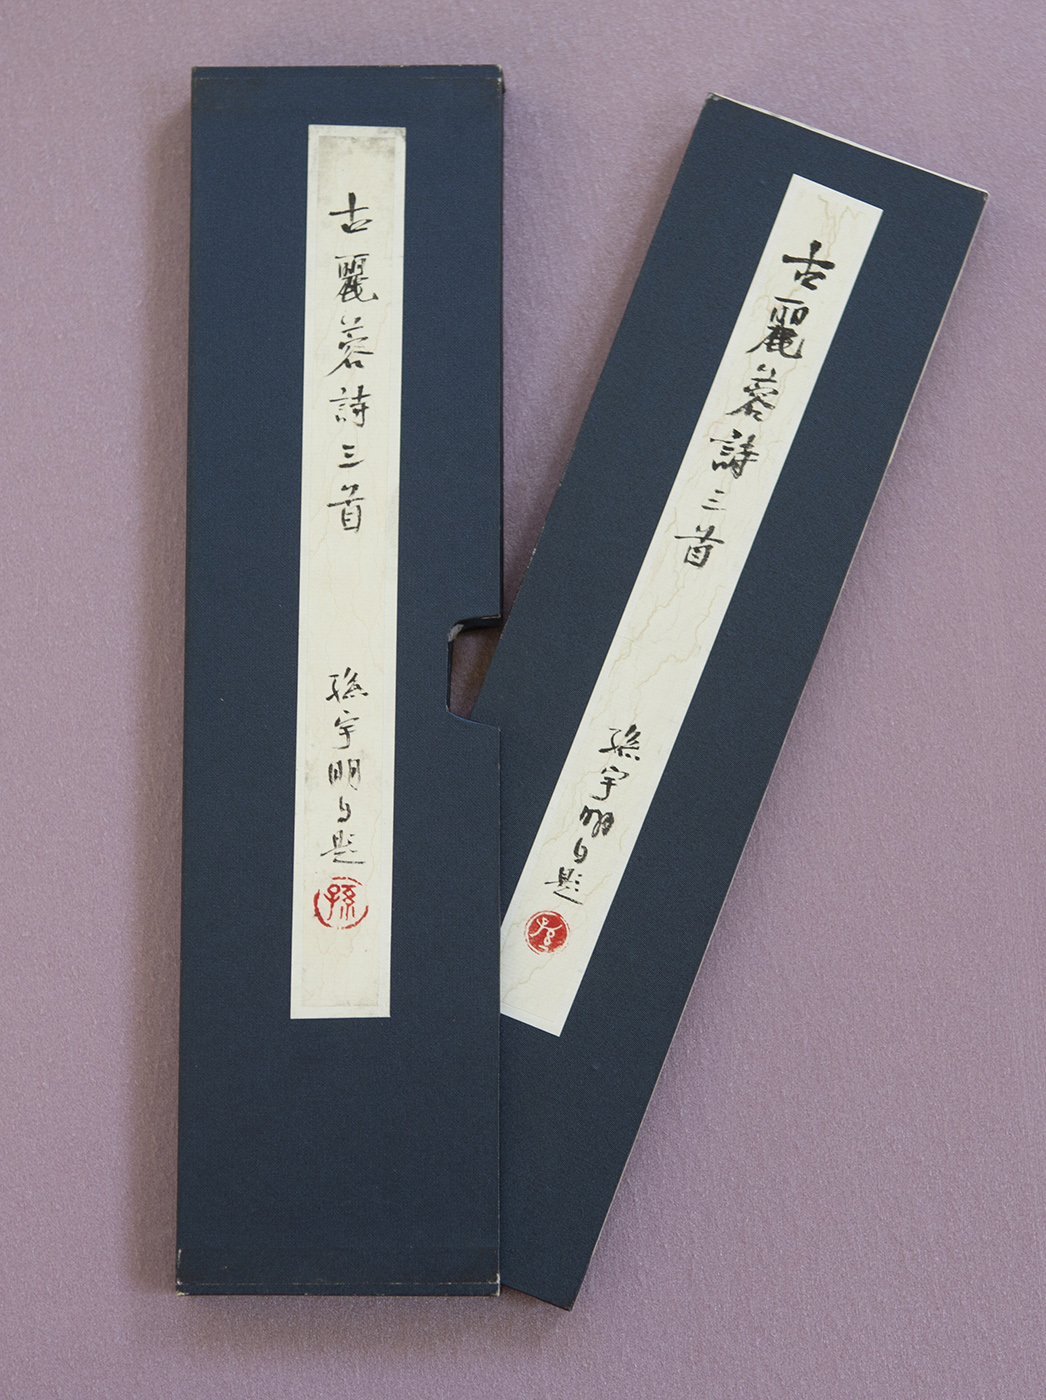 古麗蓉詩三首
孫宇明自題
孫
古麗蓉詩三首
孫宇明自題